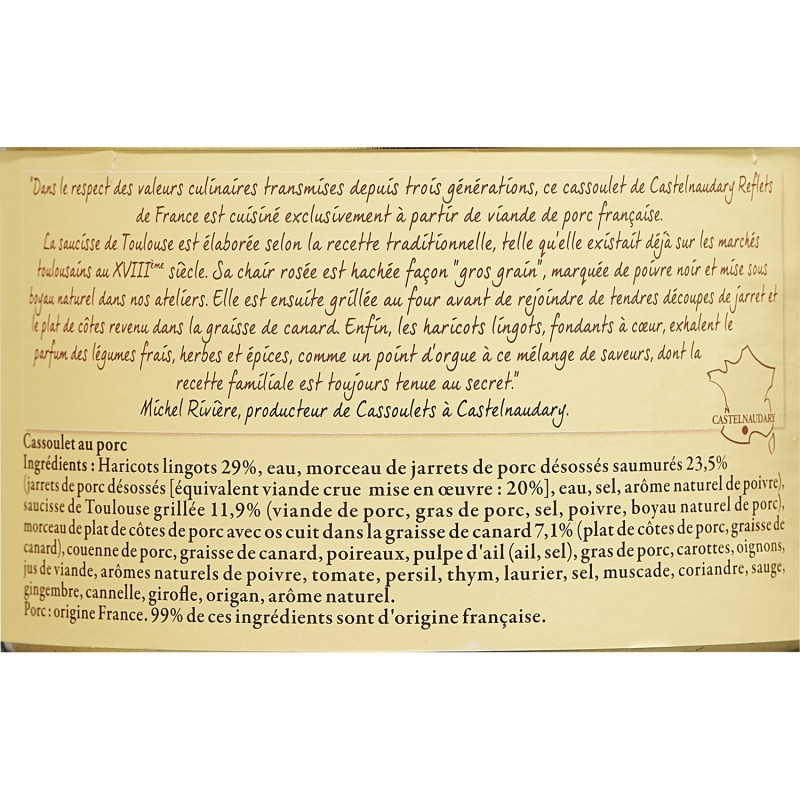 "Dans le respect des valeurs culinaires transmises depuis trois générations, ce cassoulet de Castelnaudary Reflets
de France est cuisiné exclusivement à partir de viande de porc française.
La saucisse de Toulouse est élaborée selon la recette traditionnelle, telle qu'elle existait déjà sur les marchés
toulousains au XVIIIème siècle. Sa chair rosée est hachée façon "gros grain", marquée de poivre noir et mise sous
boyau naturel dans nos ateliers. Elle est ensuite grillée au four avant de rejoindre de tendres découpes de jarret et
le plat de côtes revenu dans la graisse de canard. Enfin, les haricots lingots, fondants à cœur, exhalent le
parfum des légumes frais, herbes et épices, comme un point d'orgue à ce mélange de saveurs, dont la
recette familiale est toujours tenue au secret."
Michel Rivière, producteur de Cassoulets à Castelnaudary.
CASTELNAUDARY
Cassoulet au porc
Ingrédients : Haricots lingots 29%, eau, morceau de jarrets de porc désossés saumurés 23,5%
(jarrets de porc désossés [équivalent viande crue mise en œuvre : 20%], eau, sel, arôme naturel de poivre),
saucisse de Toulouse grillée 11,9% (viande de porc, gras de porc, sel, poivre, boyau naturel de porc),
morceau de plat de côtes de porc avec os cuit dans la graisse de canard 7,1% (plat de côtes de porc, graisse de
canard), couenne de porc, graisse de canard, poireaux, pulpe d'ail (ail, sel), gras de porc, carottes, oignons,
jus de viande, arômes naturels de poivre, tomate, persil, thym, laurier, sel, muscade, coriandre, sauge,
gingembre, cannelle, girofle, origan, arôme naturel.
Porc : origine France. 99% de ces ingrédients sont d'origine française.